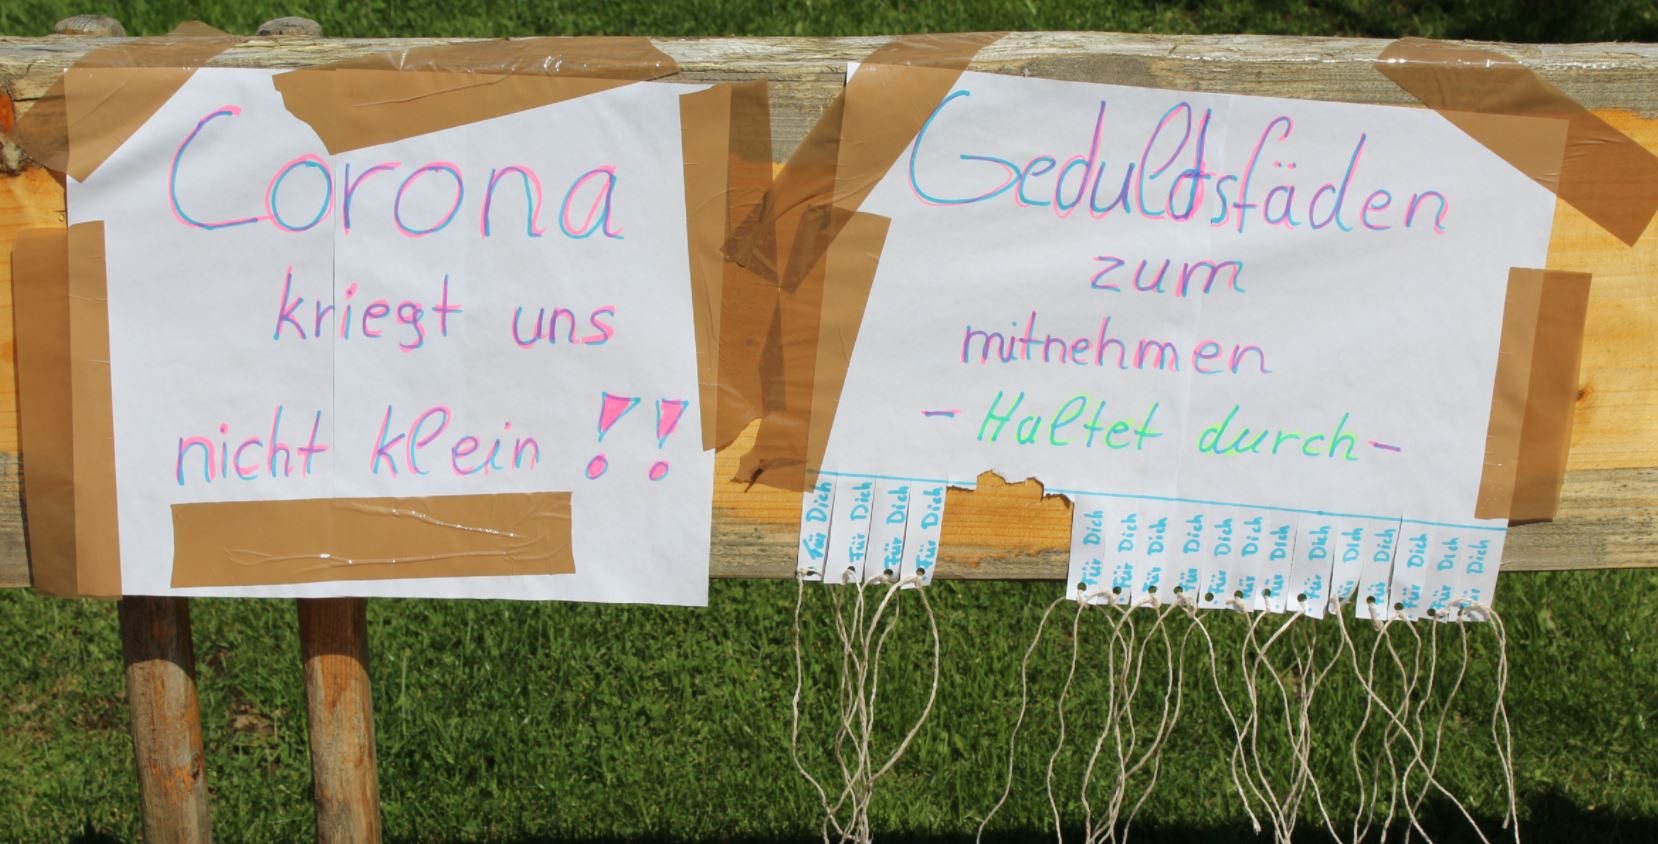 Corona
kriegt uns
nicht klein !!
Geduldsfäden
zum
mitnehmen
- Haltet durch -
Für Dich
Für Dich
Für Dich
Für Dich
Für Dich
Für Dich
Für Dich
Für Dich
Für Dich
Für Dich
Für Dich
Für Dich
Für Dich
Für Dich
Für Dich
Für Dich
Für Dich